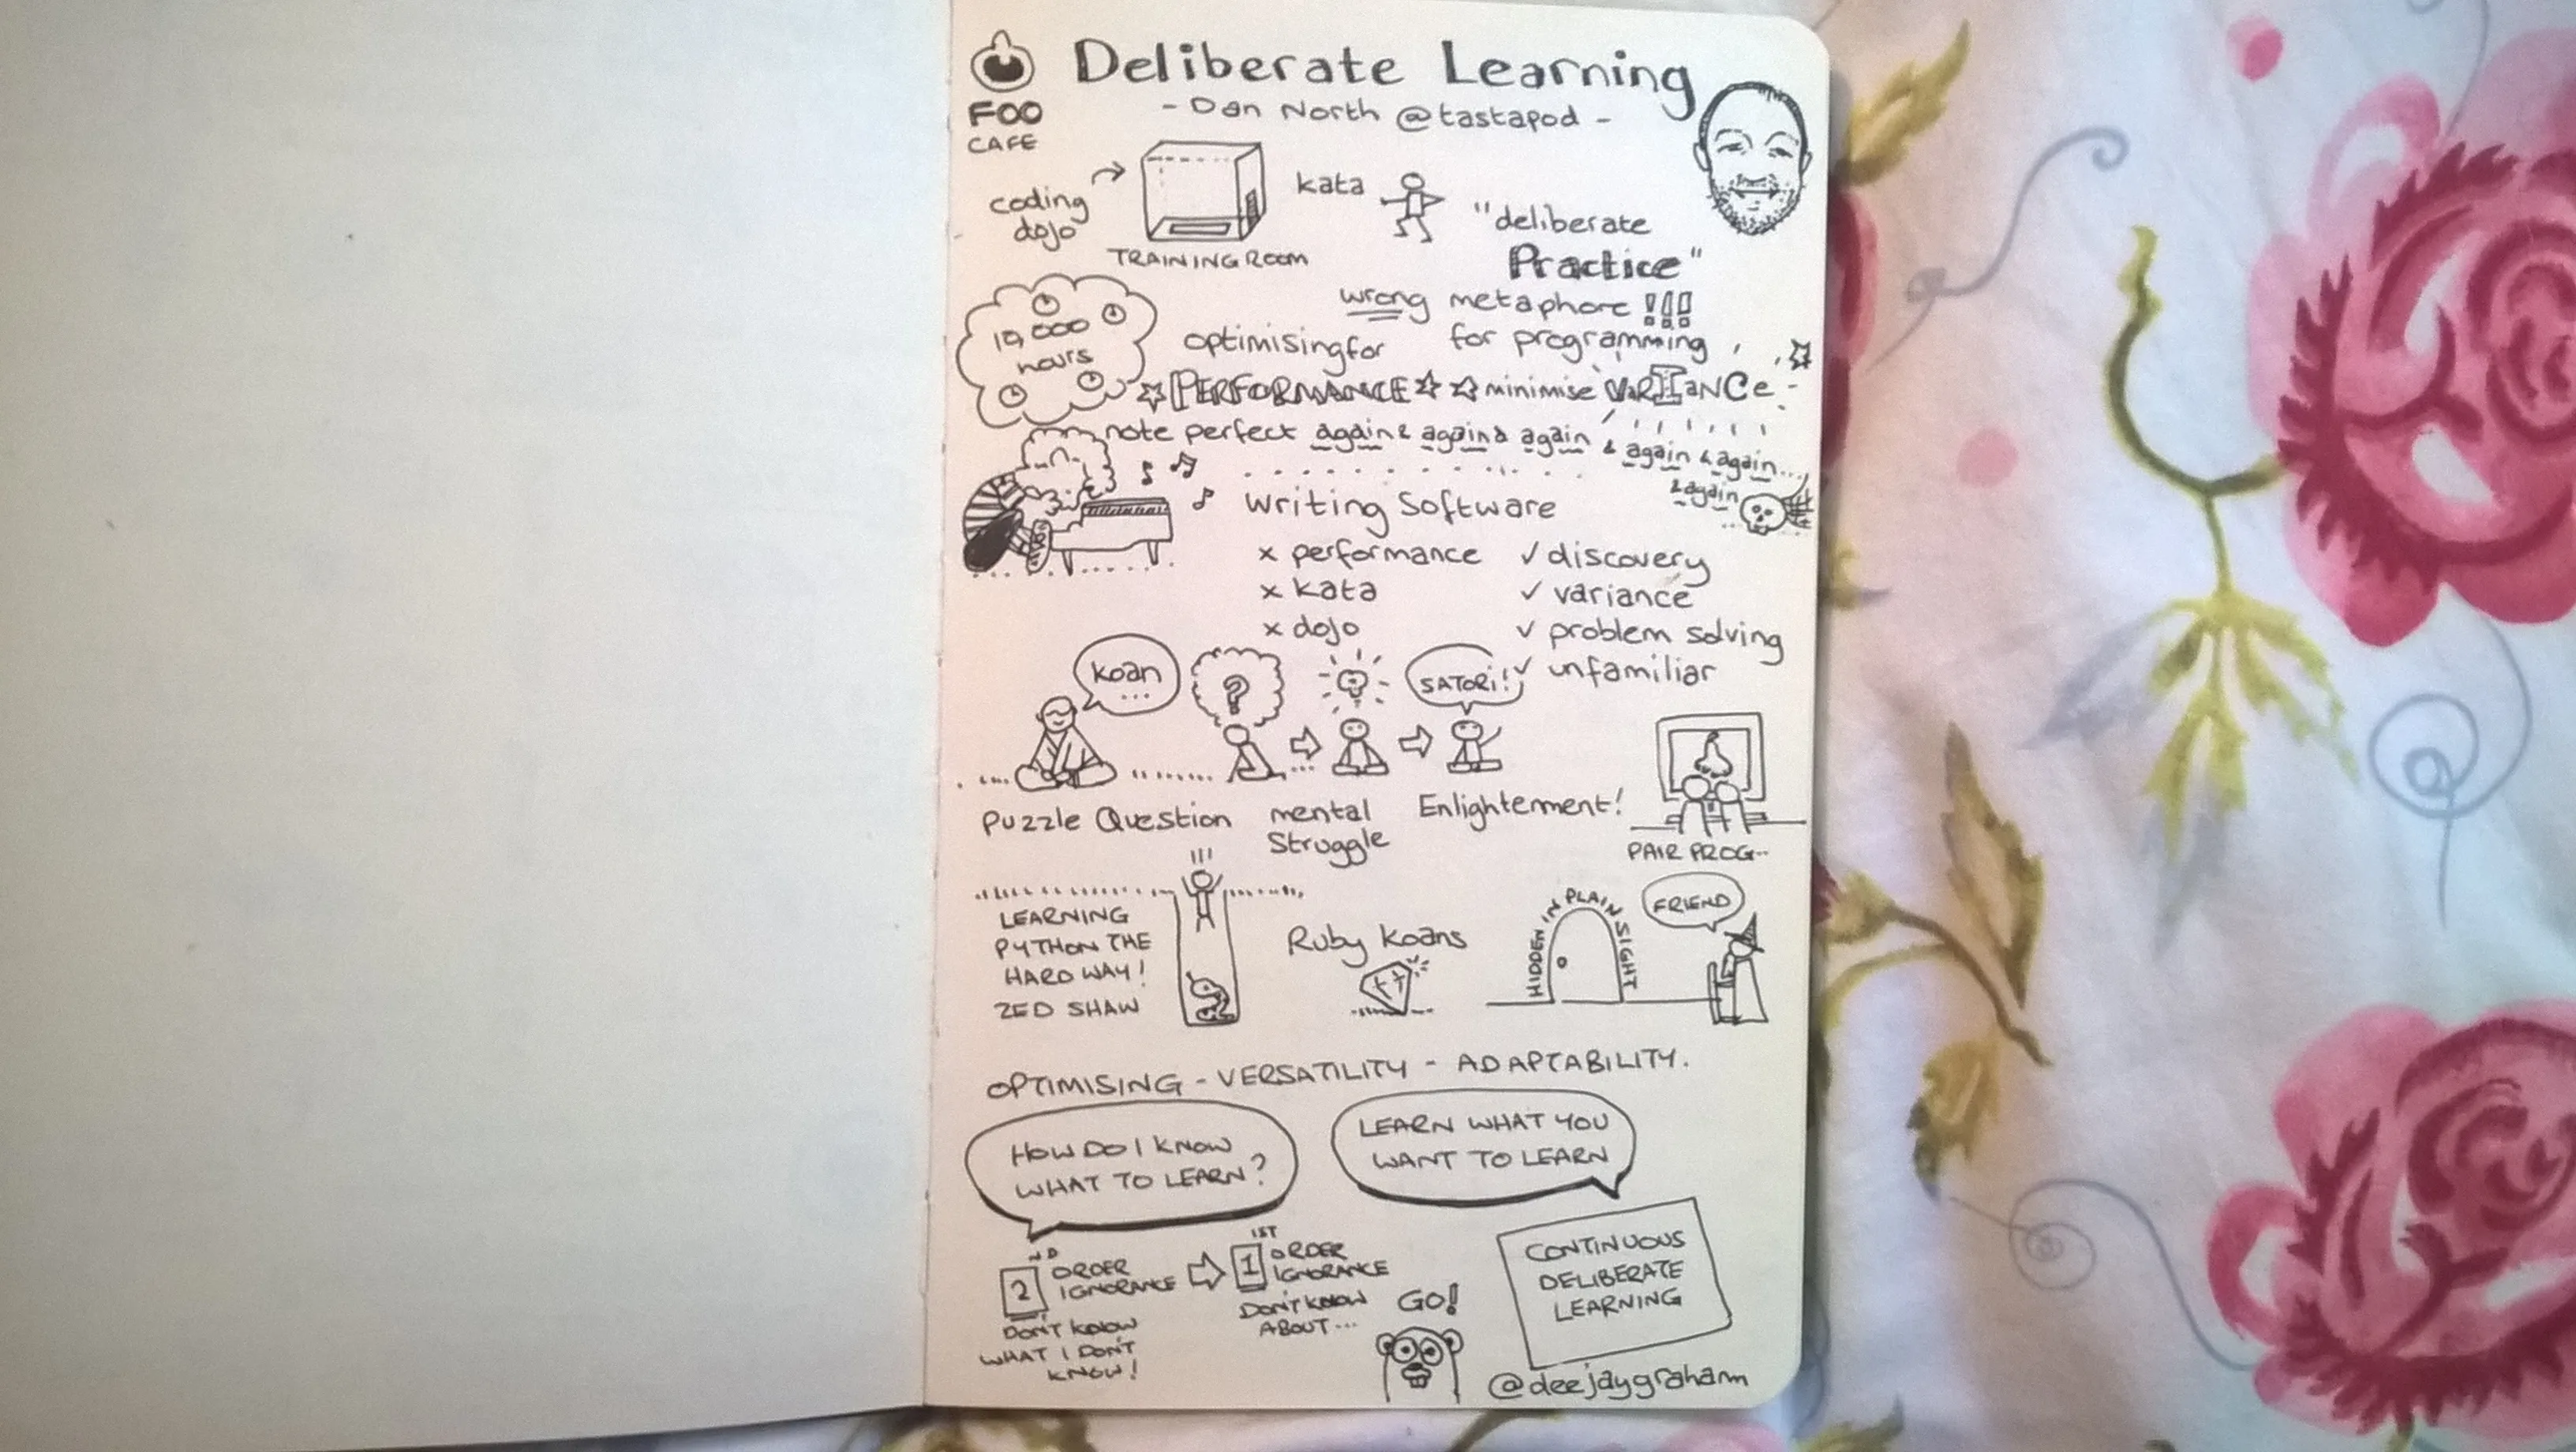 Deliberate Learning
FOO
CAFE
- Dan North @tastapod -
coding
dojo
TRAINING ROOM
kata
"deliberate
Practice"
wrong metaphore !!!
for programming
10,000
hours
optimising for
PERFORMANCE minimise VARIANCe
note perfect again & again & again & again & again...
& again
...
Writing Software
x performance
x kata
x dojo
✓ discovery
✓ variance
✓ problem solving
✓ unfamiliar
koan
...
?
SATORI!
Puzzle Question
mental
Struggle
Enlightenment!
PAIR PROG..
!!!
LEARNING
PYTHON THE
HARD WAY!
ZED SHAW
Ruby Koans
HIDDEN IN PLAIN SIGHT
FRIEND
OPTIMISING - VERSATILITY - ADAPTABILITY.
HOW DO I KNOW
WHAT TO LEARN?
LEARN WHAT YOU
WANT TO LEARN
2 ND ORDER
IGNORANCE
DON'T KNOW
WHAT I DON'T
KNOW!
1 1ST ORDER
IGNORANCE
DON'T KNOW
ABOUT...
GO!
CONTINUOUS
DELIBERATE
LEARNING
@deejaygraham